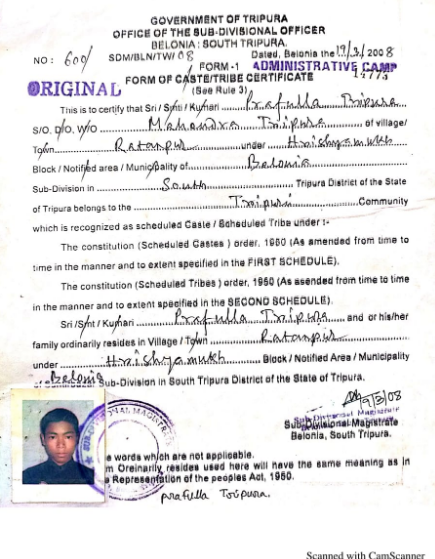 GOVERNMENT OF TRIPURA
OFFICE OF THE SUB-DIVISIONAL OFFICER
BELONIA: SOUTH TRIPURA.
NO: 600/ SDM/BLN/TW/08 Dated, Belonia the 19/3/2008
FORM-1 ADMINISTRATIVE CAMP
ORIGINAL FORM OF CASTE/TRIBE CERTIFICATE
(See Rule 3)
This is to certify that Sri / Smti / Kumari Prafulla Tripura
S/O, D/O, W/O Mahandra Tripura of village/
Town Ratanpur under Hrishyamukh
Block / Notified area / Municipality of Belonia
Sub-Division in South Tripura District of the State
of Tripura belongs to the Tripuri Community
which is recognized as scheduled Caste / Scheduled Tribe under :-
The constitution (Scheduled Castes ) order, 1950 (As amended from time to
time in the manner and to extent specified in the FIRST SCHEDULE).
The constitution (Scheduled Tribes ) order, 1950 (As asended from time to time
in the manner and to extent specified in the SECOND SCHEDULE).
Sri / Smt / Kumari Prafulla Tripura and or his/her
family ordinarily resides in Village / Town Ratanpur
under Hrishyamukh Block / Notified Area / Municipality
Belonia Sub-Division in South Tripura District of the State of Tripura.
19/3/08
Sub-Divisional Magistrate
Sub-Divisional Magistrate
Belonia, South Tripura.
SUB-DIVISIONAL MAGISTRATE
e words which are not applicable.
m Oreinarily resides used here will have the same meaning as in
e Representation of the peoples Act, 1950.
prafulla Tripura.
Scanned with CamScanner